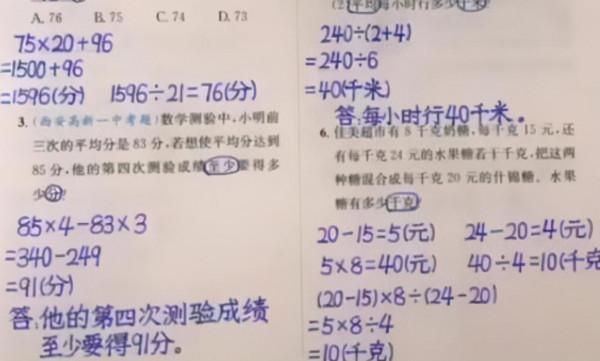 A. 76 B. 75 C. 74 D. 73
75×20+96
=1500+96
=1596(分) 1596÷21=76(分)
3.(西安高新一中考题)数学测验中,小明前
三次的平均分是 83 分,若想使平均分达到
85 分,他的第四次测验成绩至少要得多
少分?
85×4-83×3
=340-249
=91(分)
答:他的第四次测验成绩
至少要得91分。
(2)平均每小时行多少千米?
240÷(2+4)
=240÷6
=40(千米)
答:每小时行40千米。
6. 佳美超市有 8 千克奶糖,每千克 15 元,还
有每千克 24 元的水果糖若干千克,把这两
种糖混合成每千克 20 元的什锦糖。水果
糖有多少千克?
20-15=5(元) 24-20=4(元)
5×8=40(元) 40÷4=10(千克
(20-15)×8÷(24-20)
=5×8÷4
=10(千克)